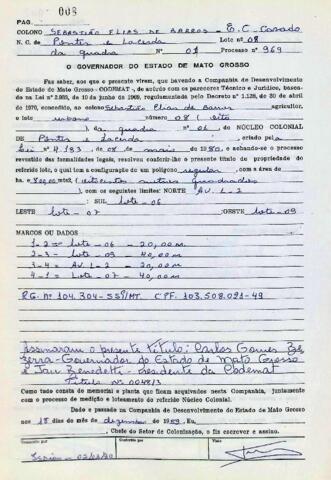 PAG. 008
COLONO SEBASTIÃO ELIAS DE BARROS - E.C. Casado
N. C. de Pontes e Lacerda Lote nº 08
da quadra nº 01 Processo nº 969
O GOVERNADOR DO ESTADO DE MATO GROSSO
Faz saber, aos que o presente virem, que havendo a Companhia de Desenvolvimento
do Estado de Mato Grosso - CODEMAT -, de acôrdo com os pareceres Técnico e Jurídico, basea-
da na Lei nº de 10 de junho de 1969, regulamentada pelo Decreto nº 1.128, de 30 de abril
de 1970, concedido, ao colono Sebastião Elias de Barros agricultor,
o lote urbano número 08 (oito
) da quadra nº 01, do NÚCLEO COLONIAL
DE Pontes e Lacerda, criado pela
Lei nº 4.193 de 08 de maio de 1980, e achando-se o processo
revestido das formalidades legais, resolveu conferir-lhe o presente título de propriedade
do referido lote, o qual tem a configuração de um polígono regular, com a área de
ha 800,00 mts2 (oitocentos metros quadrados
), com os seguintes limites: NORTE Av. L-2
; SUL lote-06
LESTE lote-07 ; OESTE lote-09
MARCOS OU DADOS
1-2 = lote - 06 - 20,00 m
2-3 - lote - 09 - 40,00 m
3-4 = Av. L-2 - 20,00 m
4-1 = lote - 07 - 40,00 m
RG. nº 104.304-SSP/MT. CPF. 103.508.091-49
Assinaram o presente título: Carlos Gomes Be
zerra - Governador do Estado de Mato Grosso
e Jair Benedetti - Presidente da Codemat
Título nº 0048/3
Como tudo consta do memorial e planta que ficam arquivados nesta Companhia, juntamente
com o processo de medição e loteamento do referido Núcleo Colonial.
Dado e passado na Companhia de Desenvolvimento do Estado de Mato Grosso
aos 15 dias do mês de dezembro de 1989, Eu,
, Chefe do Setor de Colonização, o fiz escrever e assino.